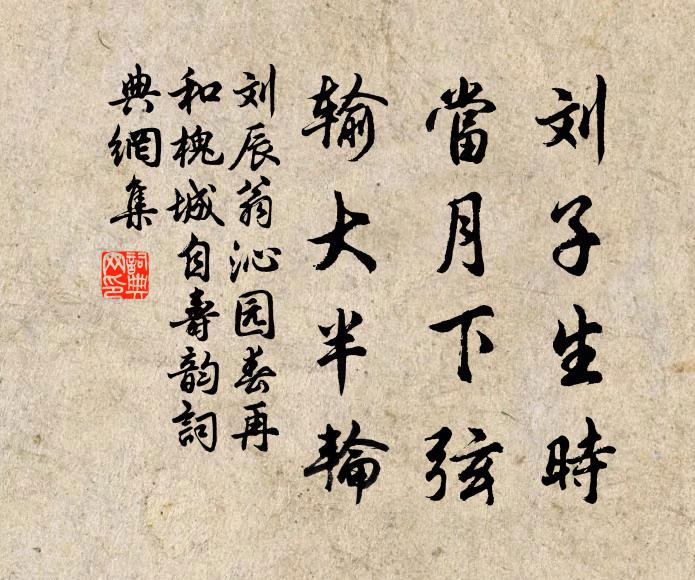 刘子生時
當月下弦
输大半輪
刘辰翁沁园春再
和槐城自壽韵詞
典網集
詞典網印